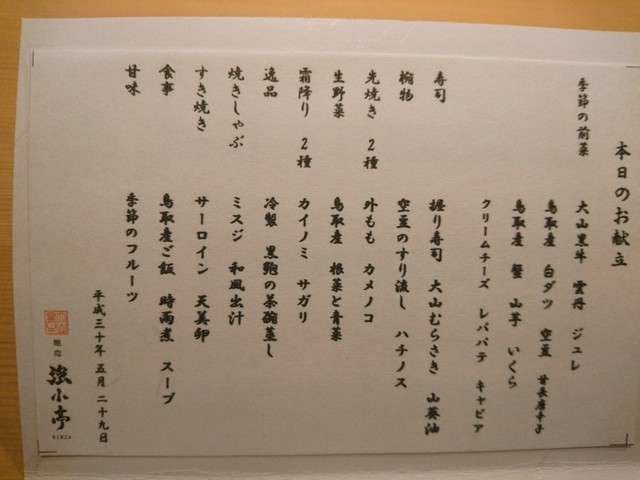 本日のお献立
季節の前菜　大山黒牛　雲丹　ジュレ
鳥取産　白ダツ　空豆　甘長唐辛子
鳥取産　蟹　山芋　いくら
クリームチーズ　レバパテ　キャビア
寿司　握り寿司　大山むらさき　山葵油
椀物　空豆のすり流し　ハチノス
先焼き　2種　外もも　カメノコ
生野菜　鳥取産　根菜と青菜
霜降り　2種　カイノミ　サガリ
逸品　冷製　黒鮑の茶碗蒸し
焼きしゃぶ　ミスジ　和風出汁
すき焼き　サーロイン　天美卵
食事　鳥取産ご飯　時雨煮　スープ
甘味　季節のフルーツ
平成三十年　五月　二十九日
焼肉
強小亭